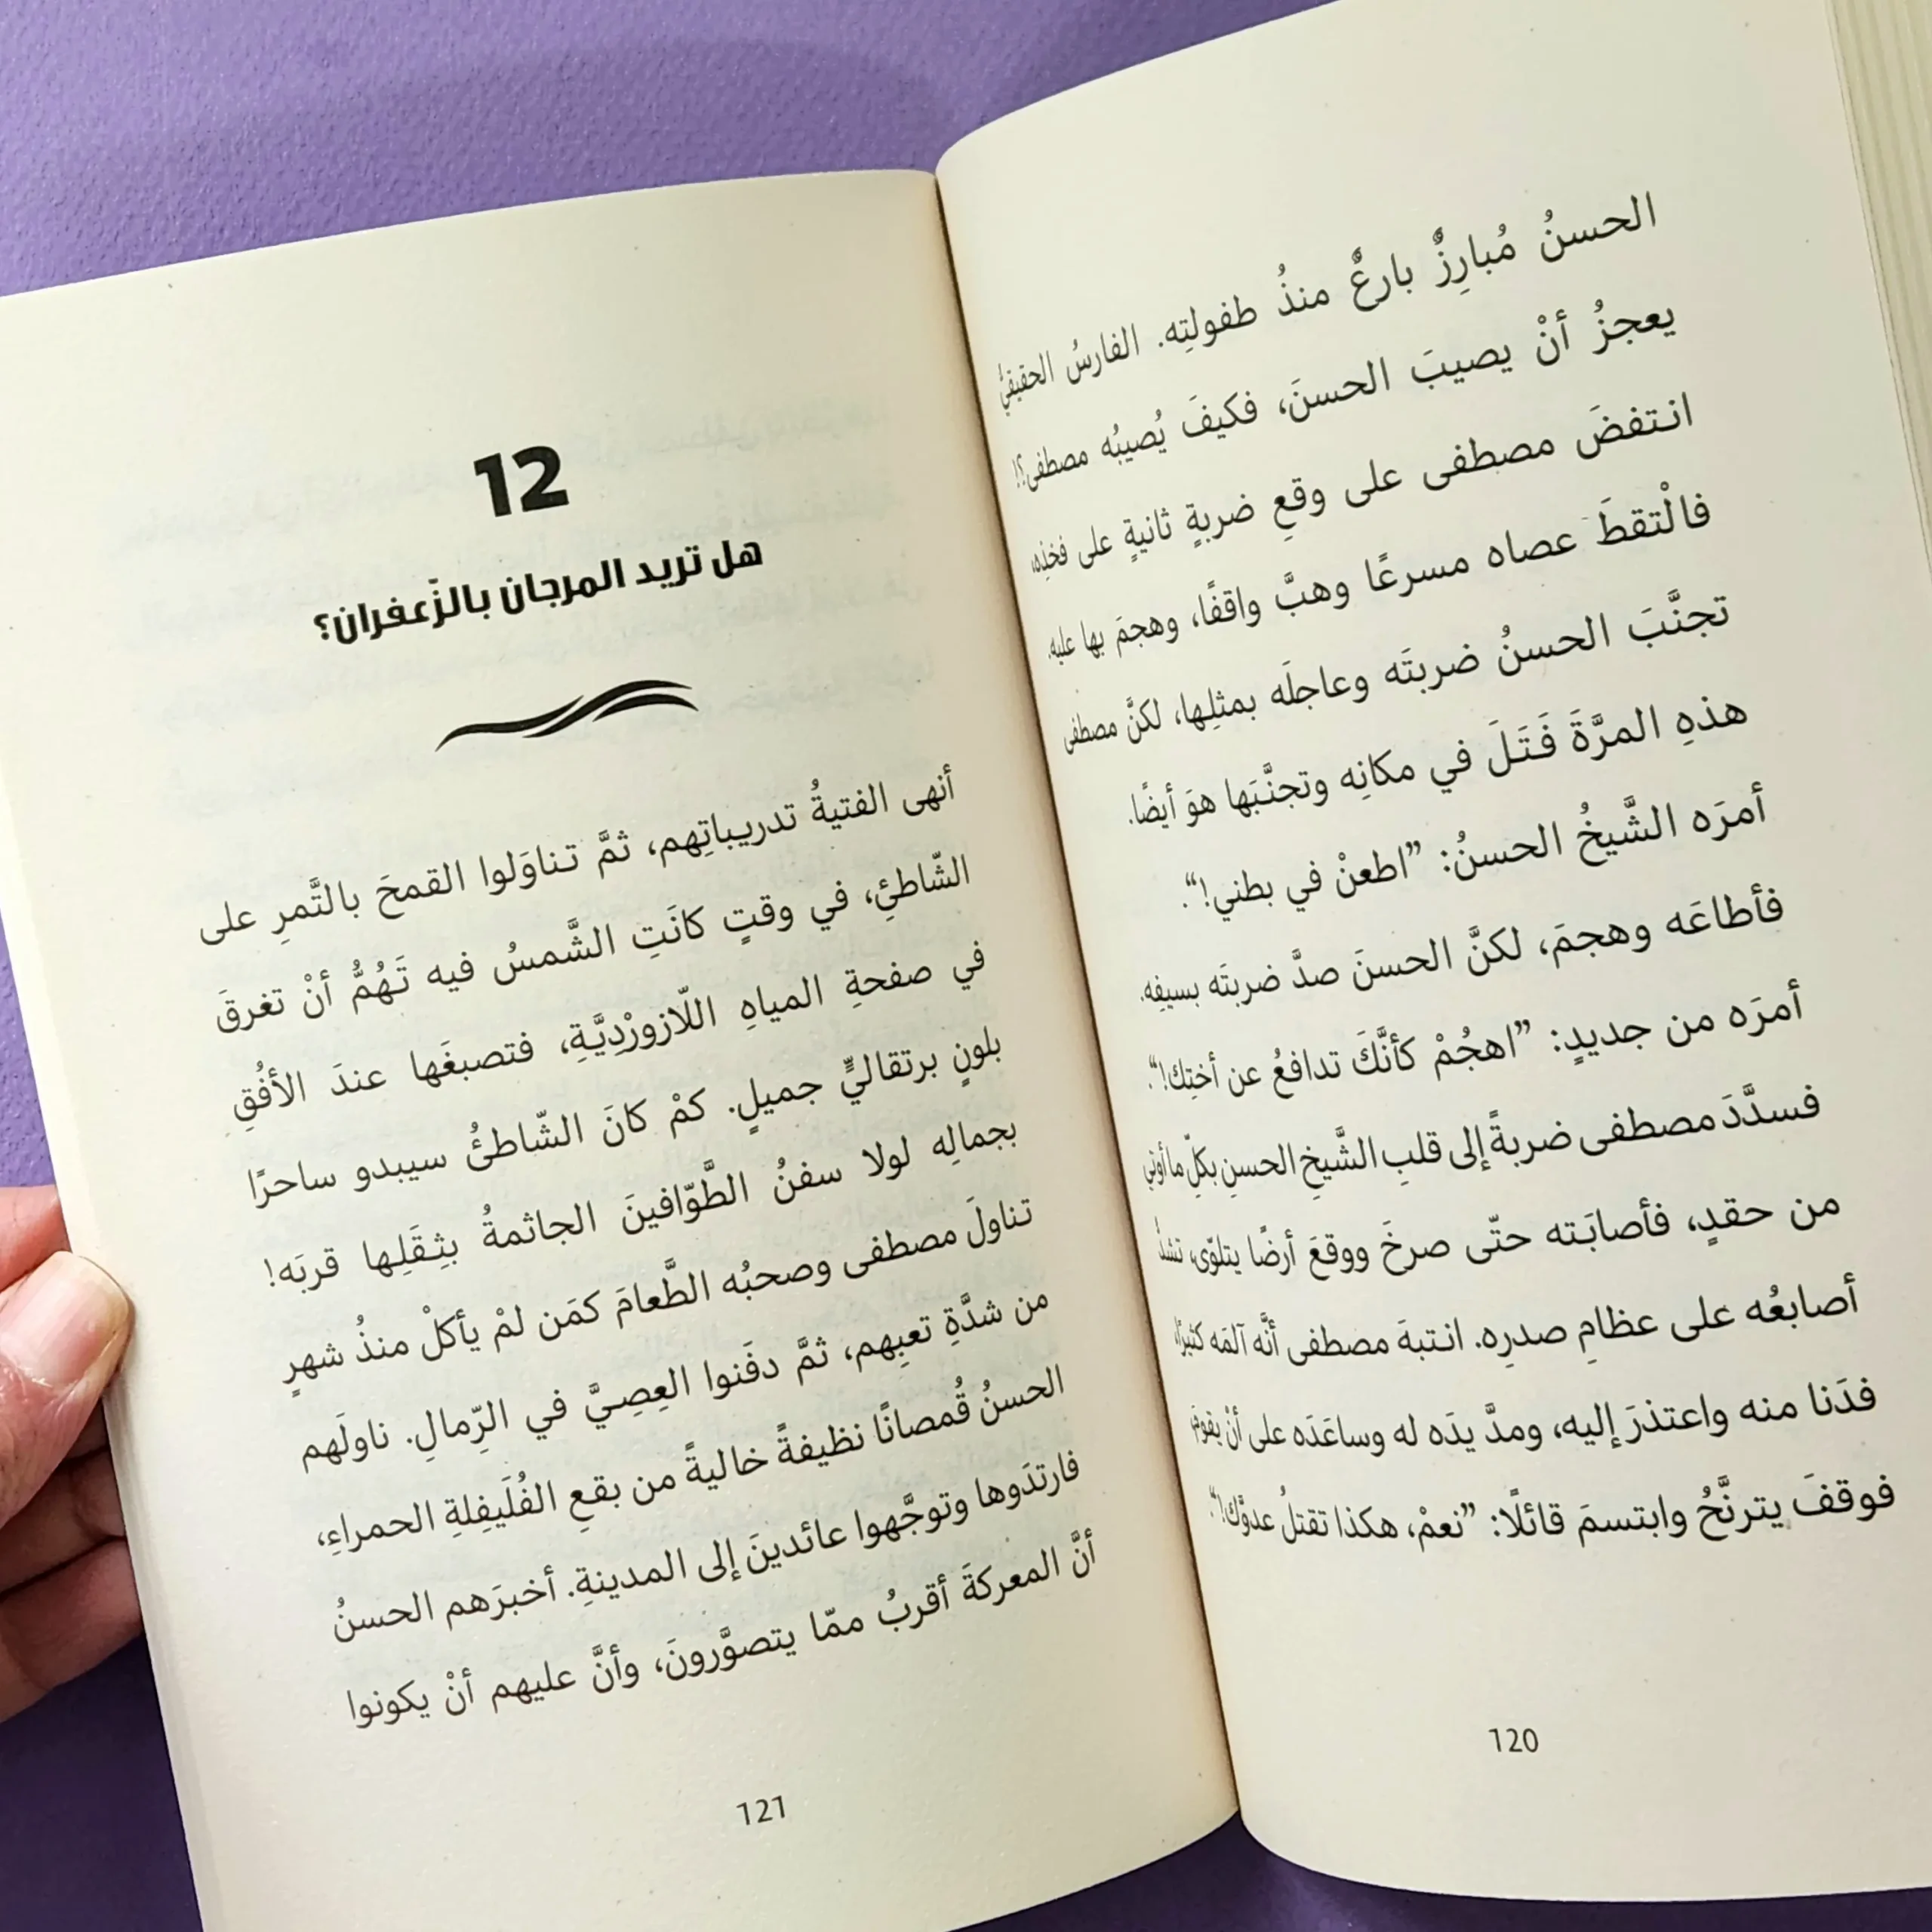 الحسنُ مُبارِزٌ بارعٌ منذُ طفولتِه. الفارسُ الحقيقيُّ
يعجزُ أنْ يصيبَ الحسنَ، فكيفَ يُصيبُه مصطفى؟!
انتفضَ مصطفى على وقعِ ضربةٍ ثانيةٍ على فخذِه،
فالْتقطَ عصاه مسرعًا وهبَّ واقفًا، وهجمَ بها عليه.
تجنَّبَ الحسنُ ضربتَه وعاجلَه بمثلِها، لكنَّ مصطفى
هذهِ المرَّةَ فَتَلَ في مكانِه وتجنَّبَها هوَ أيضًا.
أمرَه الشَّيخُ الحسنُ: ”اطعنْ في بطني!“.
فأطاعَه وهجمَ، لكنَّ الحسنَ صدَّ ضربتَه بسيفِه.
أمرَه من جديدٍ: ”اهجُمْ كأنَّكَ تدافعُ عن أختِك!“.
فسدَّدَ مصطفى ضربةً إلى قلبِ الشَّيخِ الحسنِ بكلِّ ما أوتي
من حقدٍ، فأصابَته حتّى صرخَ ووقعَ أرضًا يتلوّى، تشدُّ
أصابعُه على عظامِ صدرِه. انتبهَ مصطفى أنَّه آلمَه كثيرًا،
فدَنا منه واعتذرَ إليه، ومدَّ يدَه له وساعَدَه على أنْ يقومَ،
فوقفَ يترنَّحُ وابتسمَ قائلًا: ”نعمْ، هكذا تقتلُ عدوَّك!“.
120
12
هل تريد المرجان بالزّعفران؟
أنهى الفتيةُ تدريباتِهم، ثمَّ تناوَلوا القمحَ بالتَّمرِ على
الشّاطئِ، في وقتٍ كانَتِ الشَّمسُ فيه تَهُمُّ أنْ تغرقَ
في صفحةِ المياهِ اللّازورْدِيَّةِ، فتصبغَها عندَ الأفُقِ
بلونٍ برتقاليٍّ جميلٍ. كمْ كانَ الشّاطئُ سيبدو ساحرًا
بجمالِه لولا سفنُ الطَّوّافينَ الجاثمةُ بثِقَلِها قربَه!
تناولَ مصطفى وصحبُه الطَّعامَ كمَن لمْ يأكلْ منذُ شهرٍ
من شدَّةِ تعبِهم، ثمَّ دفَنوا العِصِيَّ في الرِّمالِ. ناولَهم
الحسنُ قُمصانًا نظيفةً خاليةً من بقعِ الفُلَيفِلةِ الحمراءِ،
فارتدَوها وتوجَّهوا عائدينَ إلى المدينةِ. أخبرَهم الحسنُ
أنَّ المعركةَ أقربُ ممّا يتصوَّرونَ، وأنَّ عليهم أنْ يكونوا
121